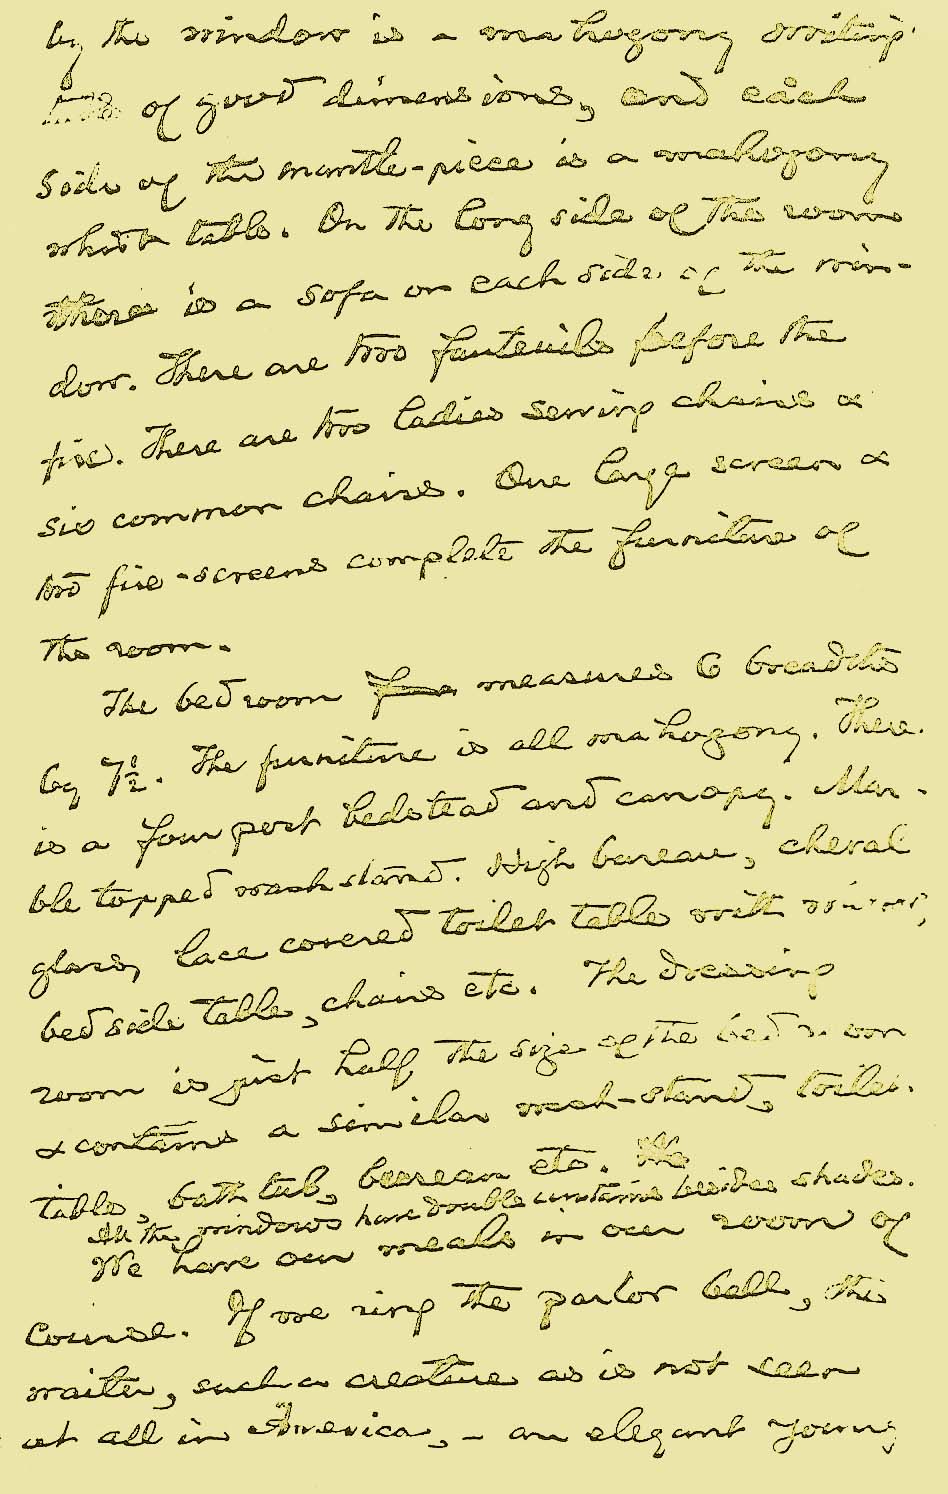 by the window is a mahogony writing
of good dimensions, and each
side of the mantle-piece is a mahogony
whist table. On the long side of the room
there is a sofa on each side of the win-
dow. There are two fauteuils before the
fire. There are two ladies sewing chairs &
six common chairs. One large screen &
two fire-screens complete the furniture of
the room.
The bedroom measures 6 breadths
by 7½. The furniture is all mahogony. There
is a four post bedstead and canopy. Mar-
ble topped wash stand. High bureau, cheval
glass, lace covered toilet table with mirror,
bedside table, chairs etc. The dressing
room is just half the size of the bedroom
& contains a similar wash-stand, toilet
table, bath tub, bureau etc.
All the windows have double curtains besides shades.
We have our meals in our room of
course. If we ring the parlor bell, the
waiter, such a creature as is not seen
at all in America, - an elegant young